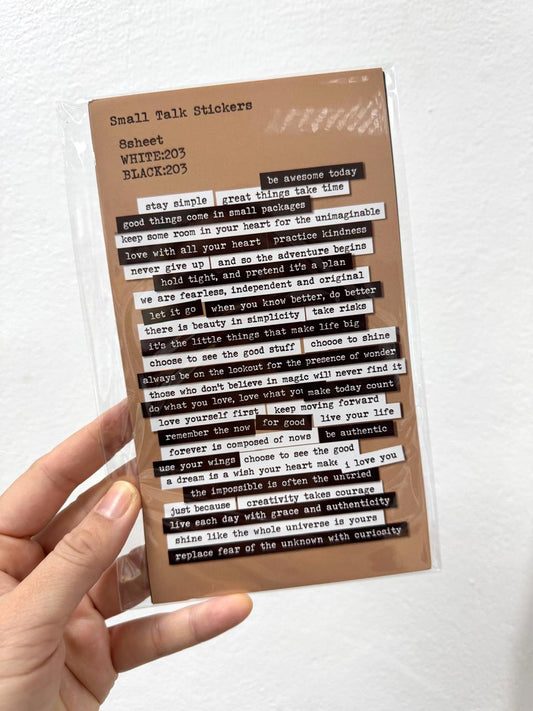 Small Talk Stickers
8sheet
WHITE:203
BLACK:203
be awesome today
stay simple great things take time
good things come in small packages
keep some room in your heart for the unimaginable
love with all your heart practice kindness
never give up and so the adventure begins
hold tight, and pretend it's a plan
we are fearless, independent and original
let it go when you know better, do better
there is beauty in simplicity take risks
it's the little things that make life big
choose to see the good stuff chooce to shine
always be on the lookout for the presence of wonder
those who don't believe in magic will never find it
do what you love, love what you make today count
love yourself first keep moving forward
remember the now for good live your life
forever is composed of nows be authentic
use your wings choose to see the good
a dream is a wish your heart make i love you
the impossible is often the untried
just because creativity takes courage
live each day with grace and authenticity
shine like the whole universe is yours
replace fear of the unknown with curiosity